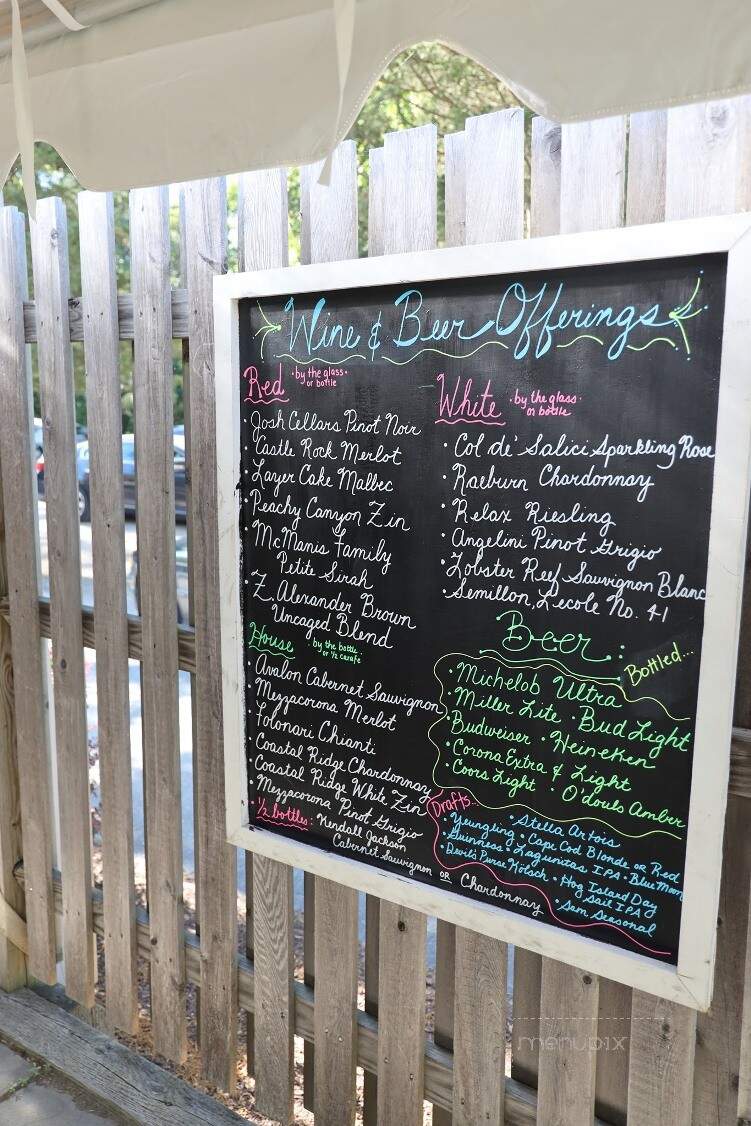 Wine & Beer Offerings
Red • by the glass •
or bottle
• Josh Cellars Pinot Noir
• Castle Rock Merlot
• Layer Cake Malbec
• Peachy Canyon Zin
• McManis Family
Petite Sirah
• Z. Alexander Brown
Uncaged Blend
House • by the bottle
or 1/2 carafe
• Avalon Cabernet Sauvignon
• Mezzacorona Merlot
• Folonari Chianti
• Coastal Ridge Chardonnay
• Coastal Ridge White Zin
• Mezzacorona Pinot Grigio
• 1/2 bottles: Kendall Jackson
Cabernet Sauvignon or Chardonnay
White • by the glass •
or bottle
• Col de' Salici Sparkling Rose
• Raeburn Chardonnay
• Relax Riesling
• Angelini Pinot Grigio
• Lobster Reef Sauvignon Blanc
• Semillon, L'ecole No. 41
Beer
Bottled...
• Michelob Ultra
• Miller Lite • Bud Light
• Budweiser • Heineken
• Corona Extra & Light
• Coors Light • O'douls Amber
Drafts...
• Stella Artois
• Yuengling • Cape Cod Blonde or Red
• Guinness • Lagunitas IPA • Blue Moon
• Devil's Purse Kölsch • Hog Island Day
Sail IPA
• Sam Seasonal
menupix